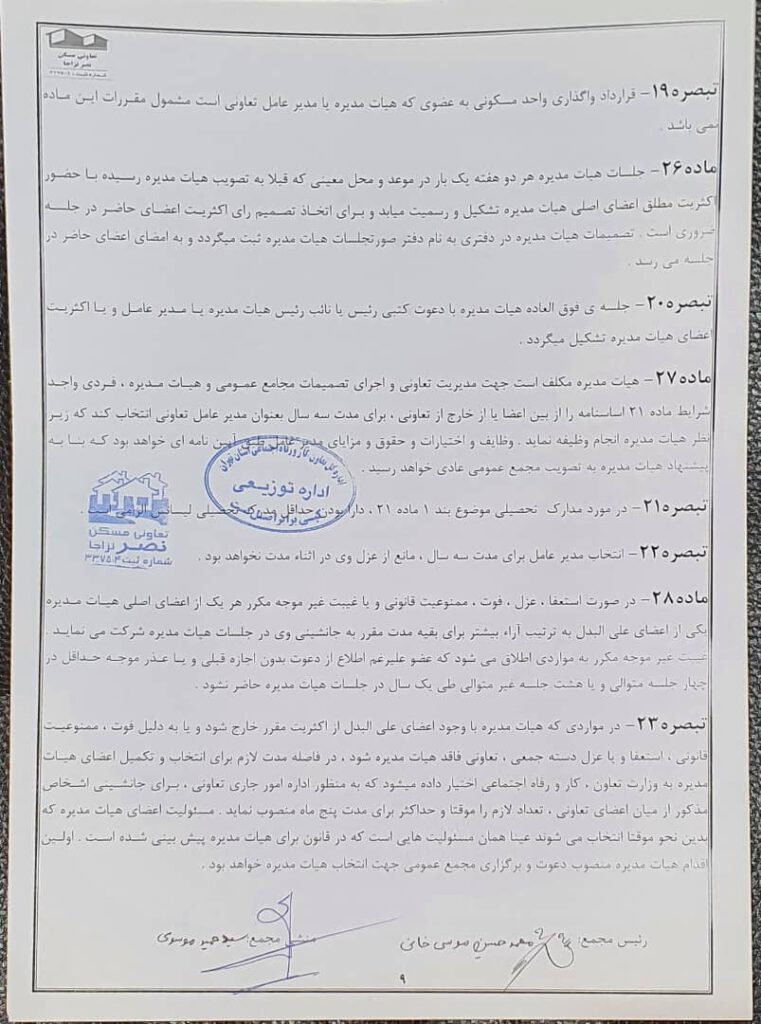 تعاونی مسکن
نصر نزاجا
شماره ثبت ۳۳۷۵۰۴
تبصره۱۹- قرارداد واگذاری واحد مسکونی به عضوی که هیات مدیره یا مدیر عامل تعاونی است مشمول مقررات این ماده
نمی باشد .
ماده۲۶- جلسات هیات مدیره هر دو هفته یک بار در موعد و محل معینی که قبلا به تصویب هیات مدیره رسیده با حضور
اکثریت مطلق اعضای اصلی هیات مدیره تشکیل و رسمیت میابد و برای اتخاذ تصمیم رای اکثریت اعضای حاضر در جلسه
ضروری است . تصمیمات هیات مدیره در دفتری به نام دفتر صورتجلسات هیات مدیره ثبت میگردد و به امضای اعضای حاضر در
جلسه می رسد .
تبصره۲۰- جلسه ی فوق العاده هیات مدیره با دعوت کتبی رئیس یا نائب رئیس هیات مدیره یا مدیر عامل و یا اکثریت
اعضای هیات مدیره تشکیل میگردد .
ماده۲۷- هیات مدیره مکلف است جهت مدیریت تعاونی و اجرای تصمیمات مجامع عمومی و هیات مدیره ، فردی واجد
شرایط ماده ۲۱ اساسنامه را از بین اعضا یا از خارج از تعاونی ، برای مدت سه سال بعنوان مدیر عامل تعاونی انتخاب کند که زیر
نظر هیات مدیره انجام وظیفه نماید . وظایف و اختیارات و حقوق و مزایای مدیر عامل طبق آیین نامه ای خواهد بود که بنا به
پیشنهاد هیات مدیره به تصویب مجمع عمومی عادی خواهد رسید .
اداره کل تعاون کار و رفاه اجتماعی استان تهران
اداره توزیعی
کپی برابر اصل است
تبصره۲۱- در مورد مدارک تحصیلی موضوع بند ۱ ماده ۲۱ ، دارا بودن حداقل مدرک تحصیلی لیسانس الزامی است .
تعاونی مسکن
نصر نزاجا
شماره ثبت ۳۳۷۵۰۴
تبصره۲۲- انتخاب مدیر عامل برای مدت سه سال ، مانع از عزل وی در اثناء مدت نخواهد بود .
ماده۲۸- در صورت استعفا ، عزل ، فوت ، ممنوعیت قانونی و یا غیبت غیر موجه مکرر هر یک از اعضای اصلی هیات مدیره
یکی از اعضای علی البدل به ترتیب آراء بیشتر برای بقیه مدت مقرر به جانشینی وی در جلسات هیات مدیره شرکت می نماید .
غیبت غیر موجه مکرر به مواردی اطلاق می شود که عضو علیرغم اطلاع از دعوت بدون اجازه قبلی و یا عذر موجه حداقل در
چهار جلسه متوالی و یا هشت جلسه غیر متوالی طی یک سال در جلسات هیات مدیره حاضر نشود .
تبصره۲۳- در مواردی که هیات مدیره با وجود اعضای علی البدل از اکثریت مقرر خارج شود و یا به دلیل فوت ، ممنوعیت
قانونی ، استعفا و یا عزل دسته جمعی ، تعاونی فاقد هیات مدیره شود ، در فاصله مدت لازم برای انتخاب و تکمیل اعضای هیات
مدیره به وزارت تعاون ، کار و رفاه اجتماعی اختیار داده میشود که به منظور اداره امور جاری تعاونی ، برای جانشینی اشخاص
مذکور از میان اعضای تعاونی ، تعداد لازم را موقتا و حداکثر برای مدت پنج ماه منصوب نماید . مسئولیت اعضای هیات مدیره که
بدین نحو موقتا انتخاب می شوند عینا همان مسئولیت هایی است که در قانون برای هیات مدیره پیش بینی شده است . اولین
اقدام هیات مدیره منصوب دعوت و برگزاری مجمع عمومی جهت انتخاب هیات مدیره خواهد بود .
رئیس مجمع: محمد حسن موسی خانی
منشی مجمع: سید حمید موسوی
۹